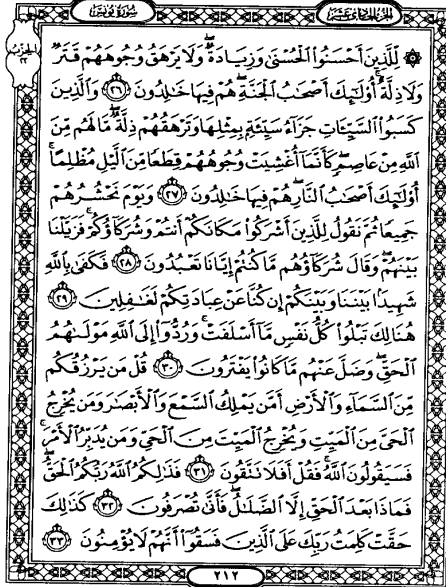 سورة يونس
الجزء الحادي عشر
الحزب
٢٢
۞ لِّلَّذِينَ أَحْسَنُوا۟ ٱلْحُسْنَىٰ وَزِيَادَةٌ ۖ وَلَا يَرْهَقُ وُجُوهَهُمْ قَتَرٌ
وَلَا ذِلَّةٌ ۚ أُو۟لَٰٓئِكَ أَصْحَٰبُ ٱلْجَنَّةِ ۖ هُمْ فِيهَا خَٰلِدُونَ ٢٦ وَٱلَّذِينَ
كَسَبُوا۟ ٱلسَّيِّـَٔاتِ جَزَآءُ سَيِّئَةٍۭ بِمِثْلِهَا وَتَرْهَقُهُمْ ذِلَّةٌ ۖ مَّا لَهُم مِّنَ
ٱللَّهِ مِنْ عَاصِمٍ ۖ كَأَنَّمَآ أُغْشِيَتْ وُجُوهُهُمْ قِطَعًا مِّنَ ٱلَّيْلِ مُظْلِمًا ۚ
أُو۟لَٰٓئِكَ أَصْحَٰبُ ٱلنَّارِ ۖ هُمْ فِيهَا خَٰلِدُونَ ٢٧ وَيَوْمَ نَحْشُرُهُمْ
جَمِيعًا ثُمَّ نَقُولُ لِلَّذِينَ أَشْرَكُوا۟ مَكَانَكُمْ أَنتُمْ وَشُرَكَآؤُكُمْ ۚ فَزَيَّلْنَا
بَيْنَهُمْ ۖ وَقَالَ شُرَكَآؤُهُم مَّا كُنتُمْ إِيَّانَا تَعْبُدُونَ ٢٨ فَكَفَىٰ بِٱللَّهِ
شَهِيدًۢا بَيْنَنَا وَبَيْنَكُمْ إِن كُنَّا عَنْ عِبَادَتِكُمْ لَغَٰفِلِينَ ٢٩
هُنَالِكَ تَبْلُوا۟ كُلُّ نَفْسٍ مَّآ أَسْلَفَتْ ۚ وَرُدُّوٓا۟ إِلَى ٱللَّهِ مَوْلَىٰهُمُ
ٱلْحَقِّ ۖ وَضَلَّ عَنْهُم مَّا كَانُوا۟ يَفْتَرُونَ ٣٠ قُلْ مَن يَرْزُقُكُم
مِّنَ ٱلسَّمَآءِ وَٱلْأَرْضِ أَمَّن يَمْلِكُ ٱلسَّمْعَ وَٱلْأَبْصَٰرَ وَمَن يُخْرِجُ
ٱلْحَىَّ مِنَ ٱلْمَيِّتِ وَيُخْرِجُ ٱلْمَيِّتَ مِنَ ٱلْحَىِّ وَمَن يُدَبِّرُ ٱلْأَمْرَ ۚ
فَسَيَقُولُونَ ٱللَّهُ ۚ فَقُلْ أَفَلَا تَتَّقُونَ ٣١ فَذَٰلِكُمُ ٱللَّهُ رَبُّكُمُ ٱلْحَقُّ ۖ
فَمَاذَا بَعْدَ ٱلْحَقِّ إِلَّا ٱلضَّلَٰلُ ۖ فَأَنَّىٰ تُصْرَفُونَ ٣٢ كَذَٰلِكَ
حَقَّتْ كَلِمَتُ رَبِّكَ عَلَى ٱلَّذِينَ فَسَقُوٓا۟ أَنَّهُمْ لَا يُؤْمِنُونَ ٣٣
٢١٢